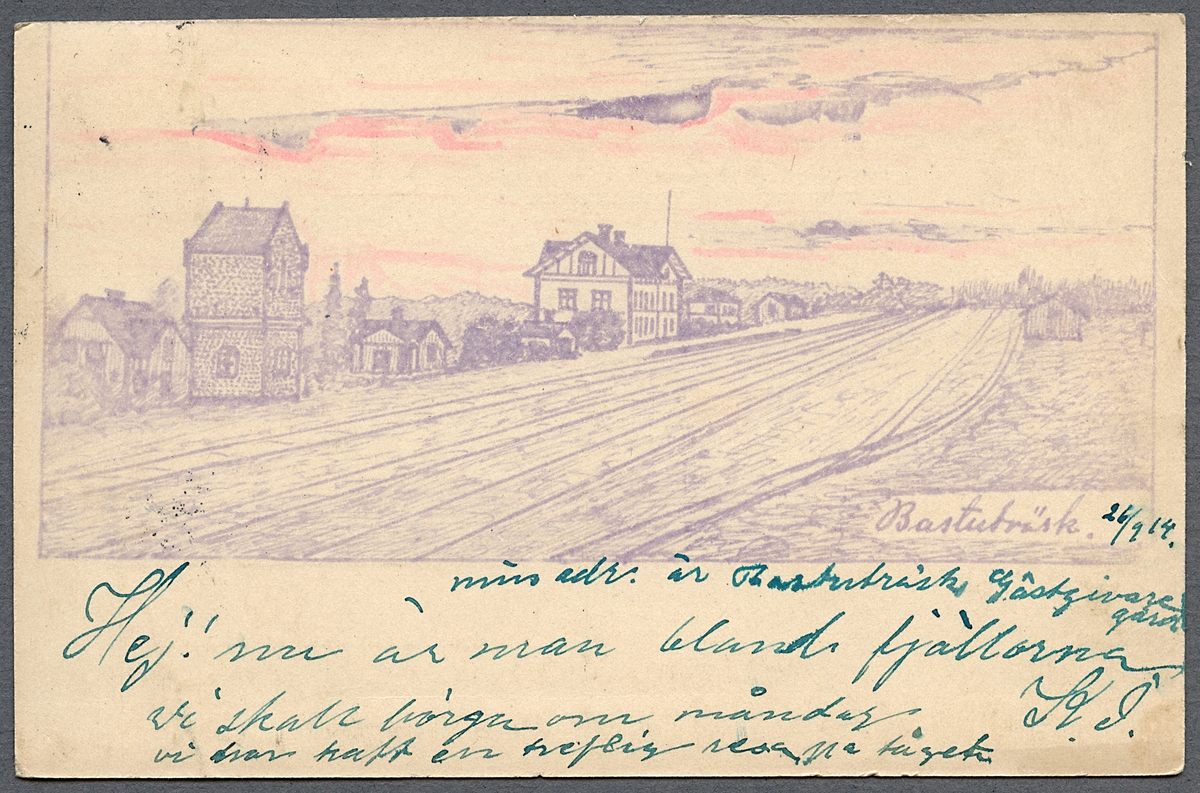 Bastuträsk.
26/9 14.
min adr. är Bastuträsk Gästgivare
gård
Hej! nu är man bland fjällorna
vi skall börga om måndag
K. J.
vi har haft en treflig resa på tåget